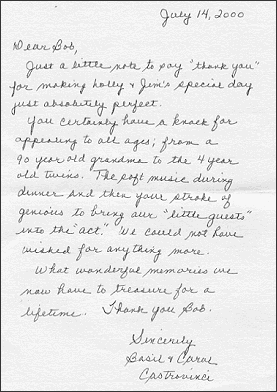 July 14, 2000
Dear Bob,
Just a little note to say "thank you"
for making Holly & Jim's special day
just absolutely perfect.
You certainly have a knack for
appealing to all ages; from a
90 year old grandma to the 4 year
old twins. The soft music during
dinner and then your stroke of
genious to bring our "little guests"
into the "act." We could not have
wished for anything more.
What wonderful memories we
now have to treasure for a
lifetime. Thank you Bob.
Sincerely
Basil & Carol
Castrovinci